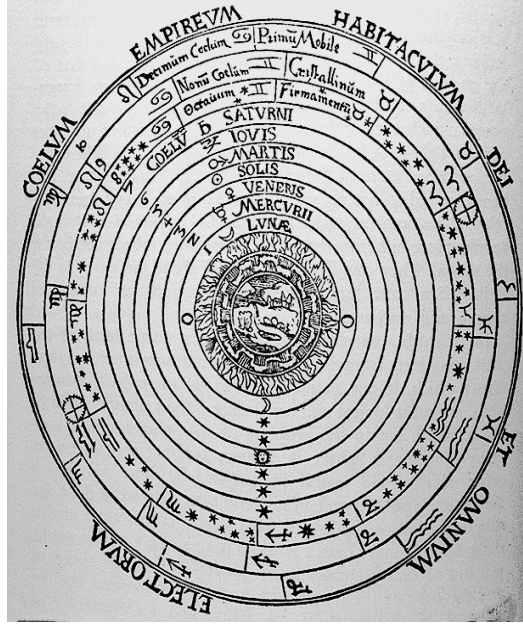 COELVM EMPIREVM HABITACVLVM DEI ET OMNIVM ELECTORVM
Decimum Coelum Primũ Mobile
Nonũ Coelũm Cristallinum
Octauum Firmamentũ
COELV SATURNI
IOVIS
MARTIS
SOLIS
VENERIS
MERCVRII
LVNÆ
8
7
6
5
4
3
2
1